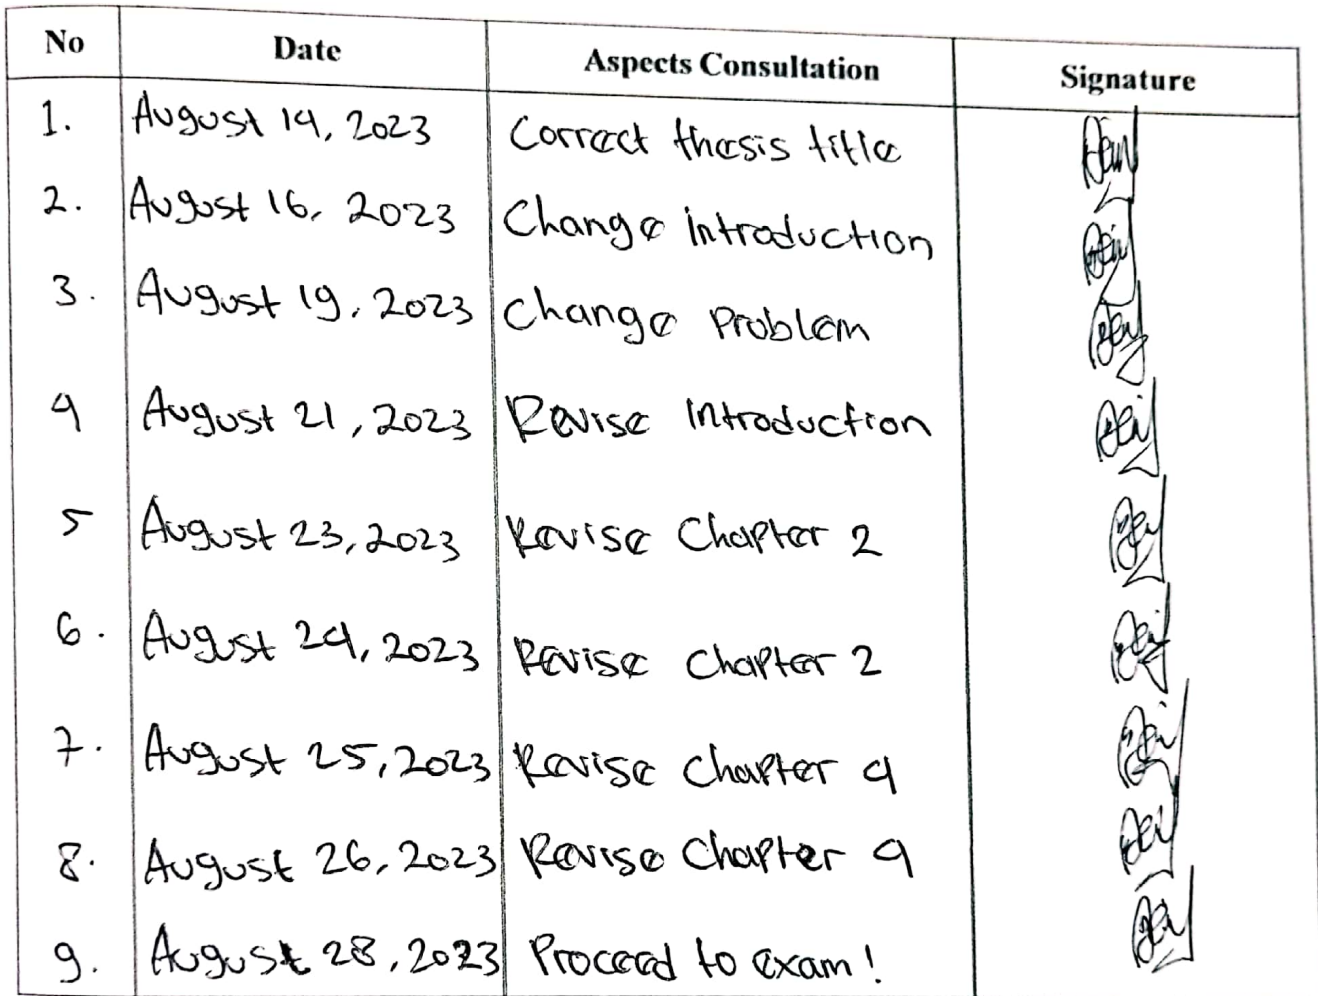 No Date Aspects Consultation Signature
1. August 14, 2023 Correct thesis title
2. August 16, 2023 Change introduction
3. August 19, 2023 Change Problem
4 August 21, 2023 Revise Introduction
5 August 23, 2023 Revise Chapter 2
6. August 24, 2023 Revise Chapter 2
7. August 25, 2023 Revise Chapter 4
8. August 26, 2023 Revise Chapter 4
9. August 28, 2023 Proceed to exam!